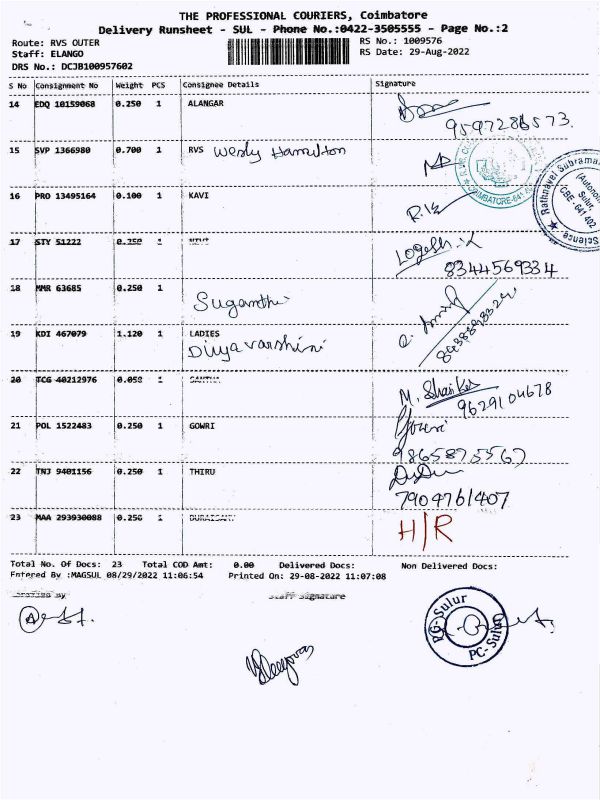 THE PROFESSIONAL COURIERS, Coimbatore
Delivery Runsheet - SUL - Phone No.:0422-3505555 - Page No.:2
Route: RVS OUTER RS No.: 1009576
Staff: ELANGO RS Date: 29-Aug-2022
DRS No.: DCJB100957602
S No Consignment No Weight PCS Consignee Details Signature
14 EDQ 10159068 0.250 1 ALANGAR
9597286573
15 SVP 1366980 0.700 1 RVS Wesly Hamilton
COIMBATORE-641 402
Rathnavel Subramaniam
(Autonomous)
Sulur,
CBE - 641 402
Science
16 PRO 13495164 0.100 1 KAVI
17 STY 51222 0.250 1
Logesh.K
8344569334
18 MMR 63685 0.250 1
Suganthi
19 KDI 467079 1.120 1 LADIES
Divyavarshini
20 TCG 40212976 0.050 1
9629104678
21 POL 1522483 0.250 1 GOWRI
Gowri
9865875567
22 TNJ 9401156 0.250 1 THIRU
7904761407
23 MAA 293930088 0.250 1 DURAISAMY
H/R
Total No. Of Docs: 23 Total COD Amt: 0.00 Delivered Docs: Non Delivered Docs:
Entered By :MAGSUL 08/29/2022 11:06:54 Printed On: 29-08-2022 11:07:08
Verified By Staff Signature
PC-Sulur
PC-Sulur